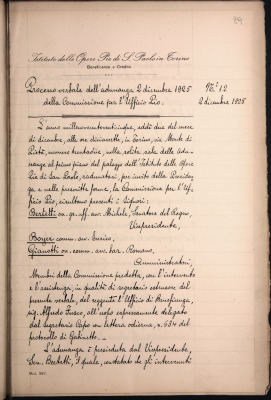 89
Istituto delle Opere Pie di S. Paolo in Torino
Beneficenza e Credito
Processo verbale dell'adunanza 2 dicembre 1925
N.° 12
della Commissione per l'Ufficio Pio.
2 dicembre 1925
L'anno millenovecentoventicinque, addì due del mese
di dicembre, alle ore diciassette, in Torino, via Monte di
Pietà, numero trentadue, nella solita sala delle adu-
nanze al primo piano del palazzo dell'Istituto delle Opere
Pie di San Paolo, radunatasi, per invito della Presiden-
za e nelle prescritte forme, la Commissione per l'Uf-
ficio Pio, risultano presenti i signori:
Bertetti on. gr. uff. avv. Michele, Senatore del Regno,
Vicepresidente,
Boyer comm. avv. Enrico,
Gianotti on. comm. avv. bar. Romano,
Amministratori,
Membri della Commissione predetta, con l'intervento
e l'assistenza, in qualità di segretario estensore del
presente verbale, del reggente l'Ufficio di Beneficenza,
sig. Alfredo Fusco, all'uopo espressamente delegato
dal Segretario Capo con lettera odierna, n. 634 del
protocollo di Gabinetto.
L'adunanza è presieduta dal Vicepresidente,
Sen. Bertetti, il quale, constatato che gli intervenuti